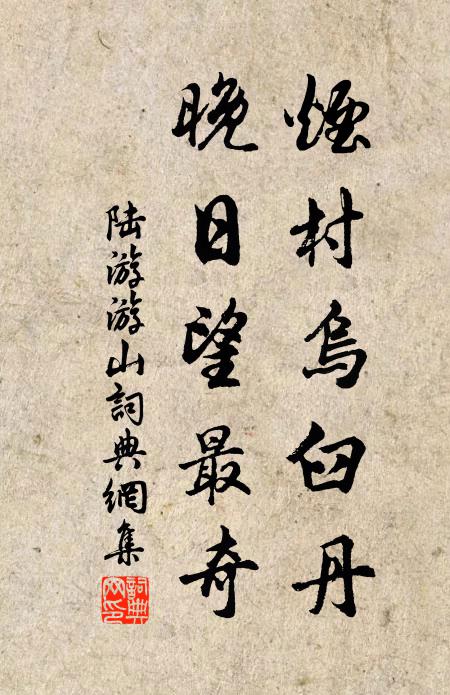 煙村烏臼丹
晚日望最奇
陆游游山詞典網集
詞典網印